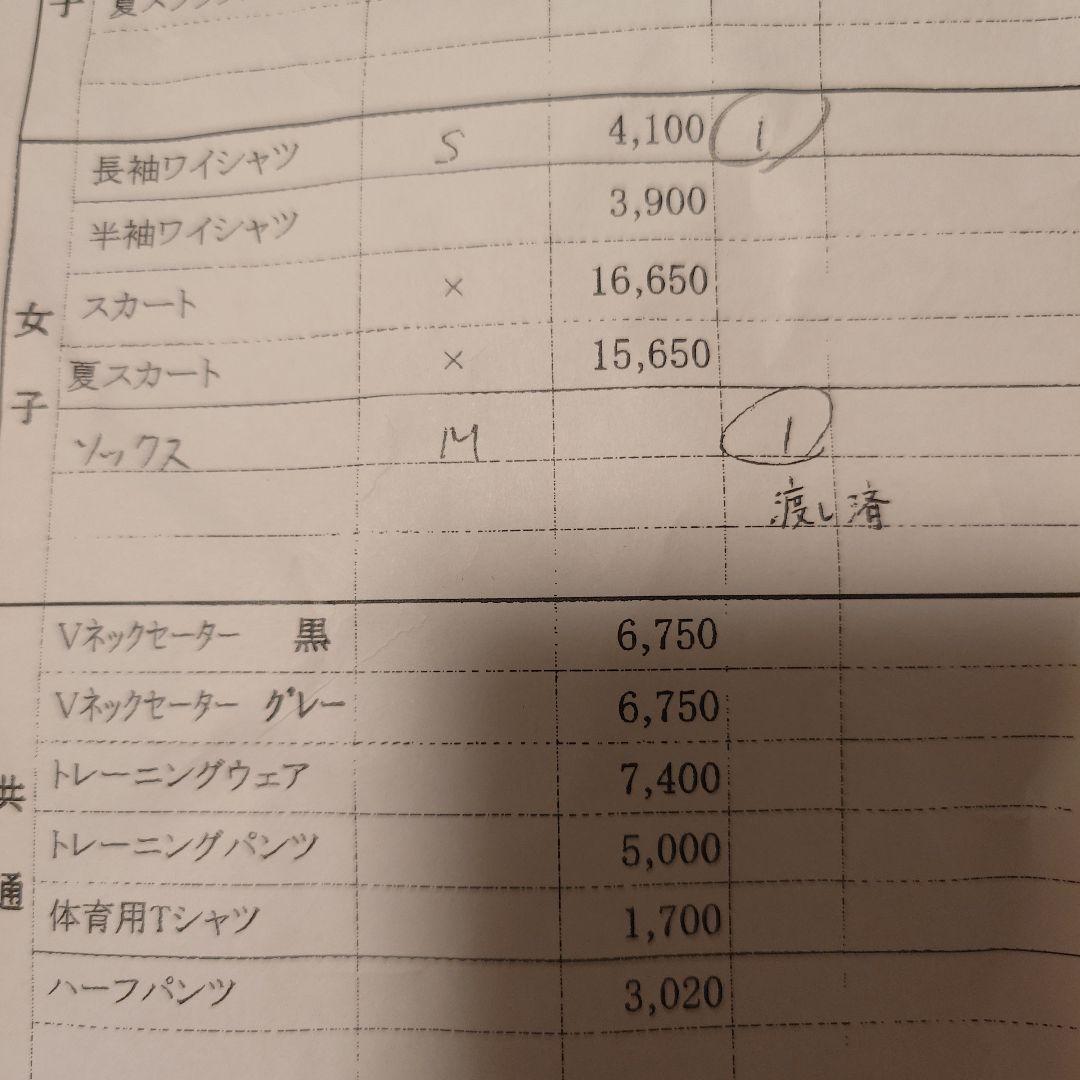 子 夏スラックス
長袖ワイシャツ S 4,100 1
半袖ワイシャツ 3,900
女子
スカート × 16,650
夏スカート × 15,650
ソックス M 1
渡し済
Vネックセーター 黒 6,750
Vネックセーター グレー 6,750
共通
トレーニングウェア 7,400
トレーニングパンツ 5,000
体育用Tシャツ 1,700
ハーフパンツ 3,020